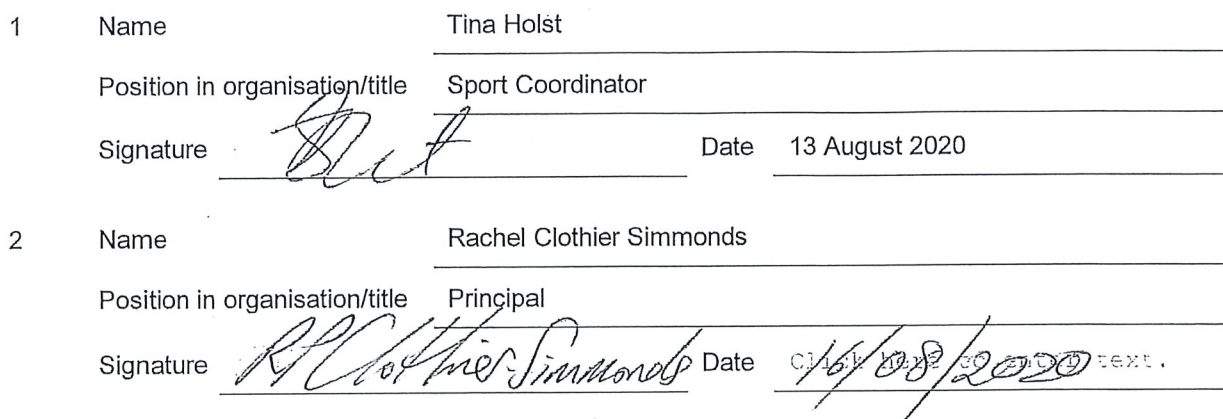 1 Name Tina Holst
Position in organisation/title Sport Coordinator
Signature Date 13 August 2020
2 Name Rachel Clothier Simmonds
Position in organisation/title Principal
Signature RP Clothier-Simmonds Date Click here to enter text. 16/08/2020